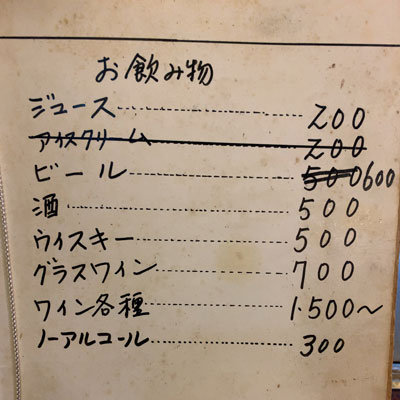 お飲み物
ジュース 200
アイスクリーム 200
ビール 500 600
酒 500
ウイスキー 500
グラスワイン 700
ワイン各種 1.500～
ノーアルコール 300